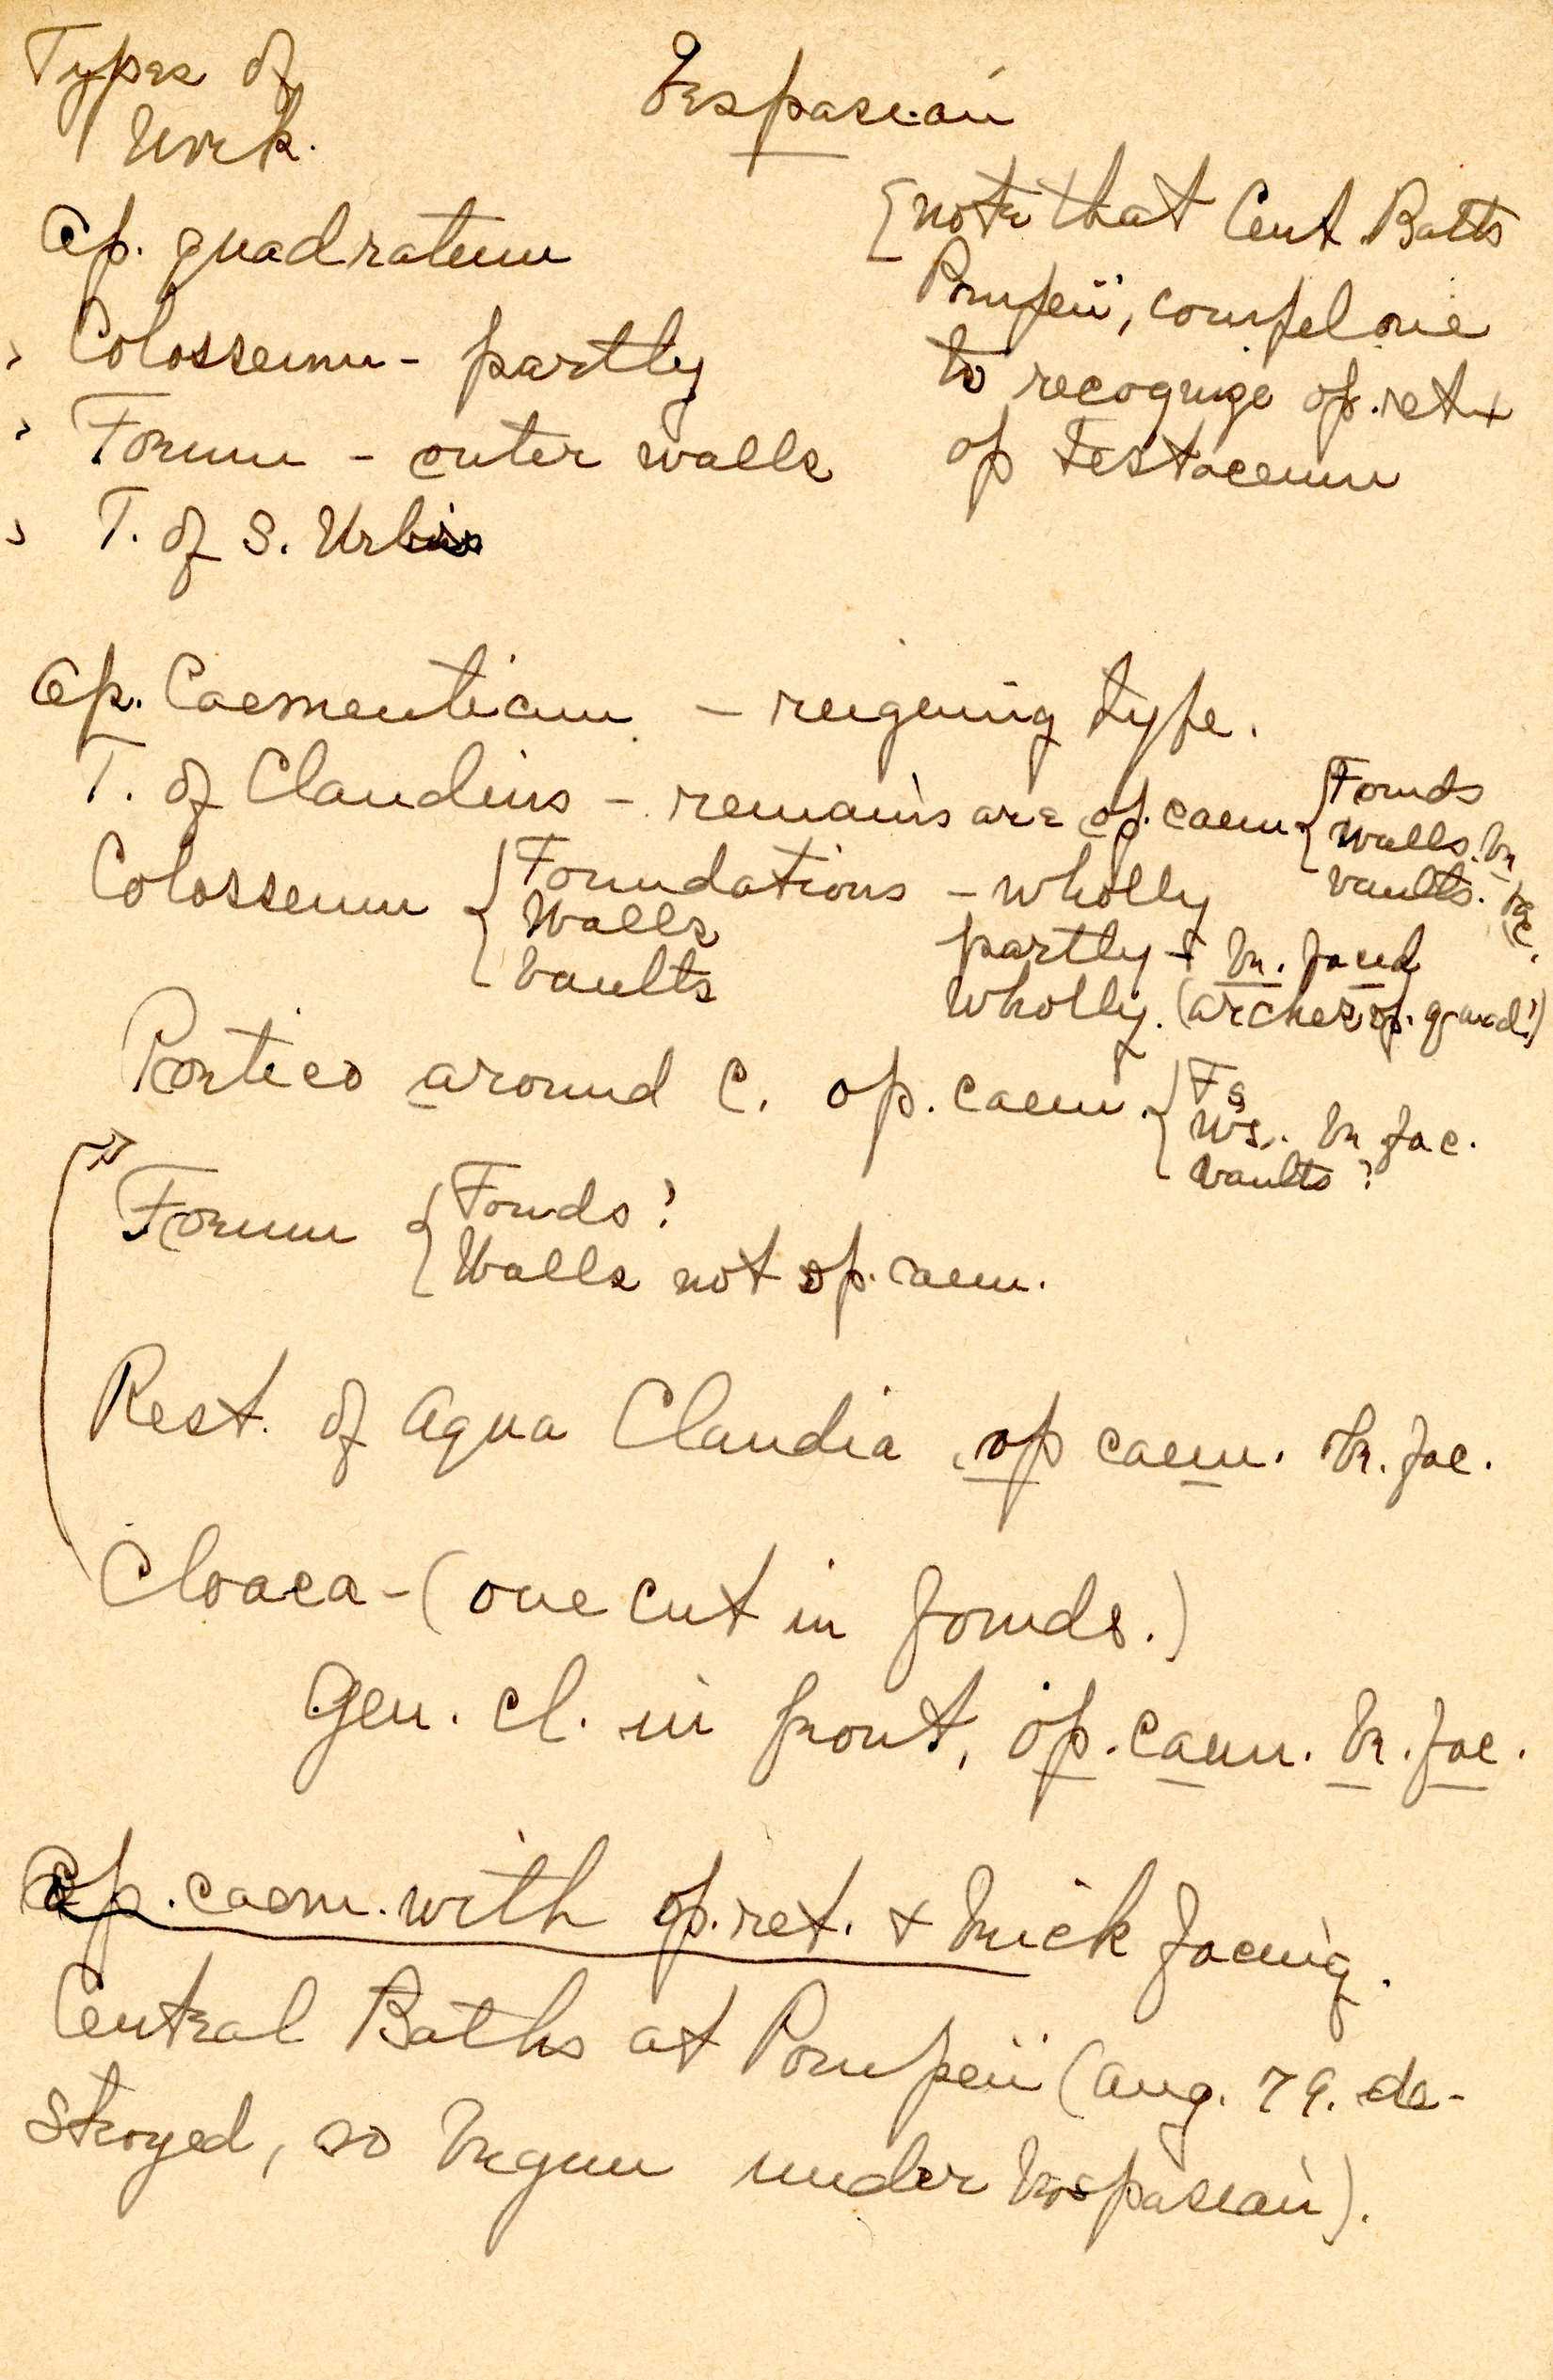 Types of
Work.
Vespasian
Op. quadratum
Colosseum - partly
Forum - outer walls
T. of S. Urbis
[note that Cent Baths
Pompeii, compel one
to recognize op. ret +
op testaceum
Op. Caementicum - reigening type.
T. of Claudius - remains are op. caem { Founds
Walls. br
Vaults. fac.
Colosseum { Foundations - wholly
Walls partly + br. faced
Vaults wholly. (arches op. quad?)
Portico around C. op. caem. { Fs
Ws. br fac.
Vaults?
Forum { Founds?
Walls not op. caem.
Rest. of Aqua Claudia, op caem. br. fac.
Cloaca - (one cut in founds.)
Gen. cl. in front, op. caem. br. fac.
Op. caem. with op. ret. + brick facing.
Central Baths at Pompeii (Aug. 79. de-
stroyed, so begun under Vespasian).